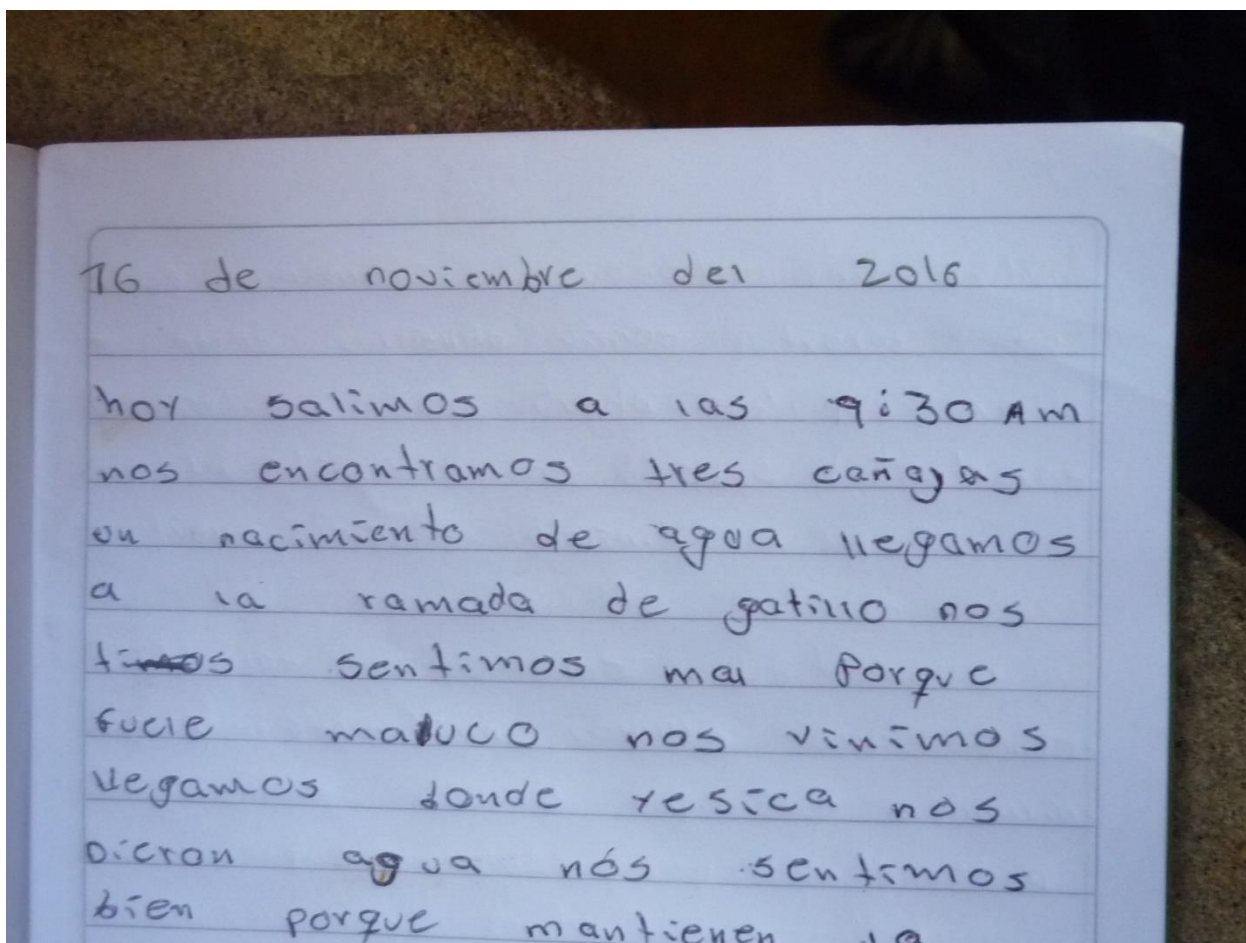 16 de noviembre del 2016
hoy salimos a las 9:30 AM
nos encontramos tres cañajas
un nacimiento de agua llegamos
a la ramada de gatillo nos
sentimos mal Porque
guele maluco nos vinimos
llegamos donde yesica nos
Dieron agua nós sentimos
bien porque mantienen la